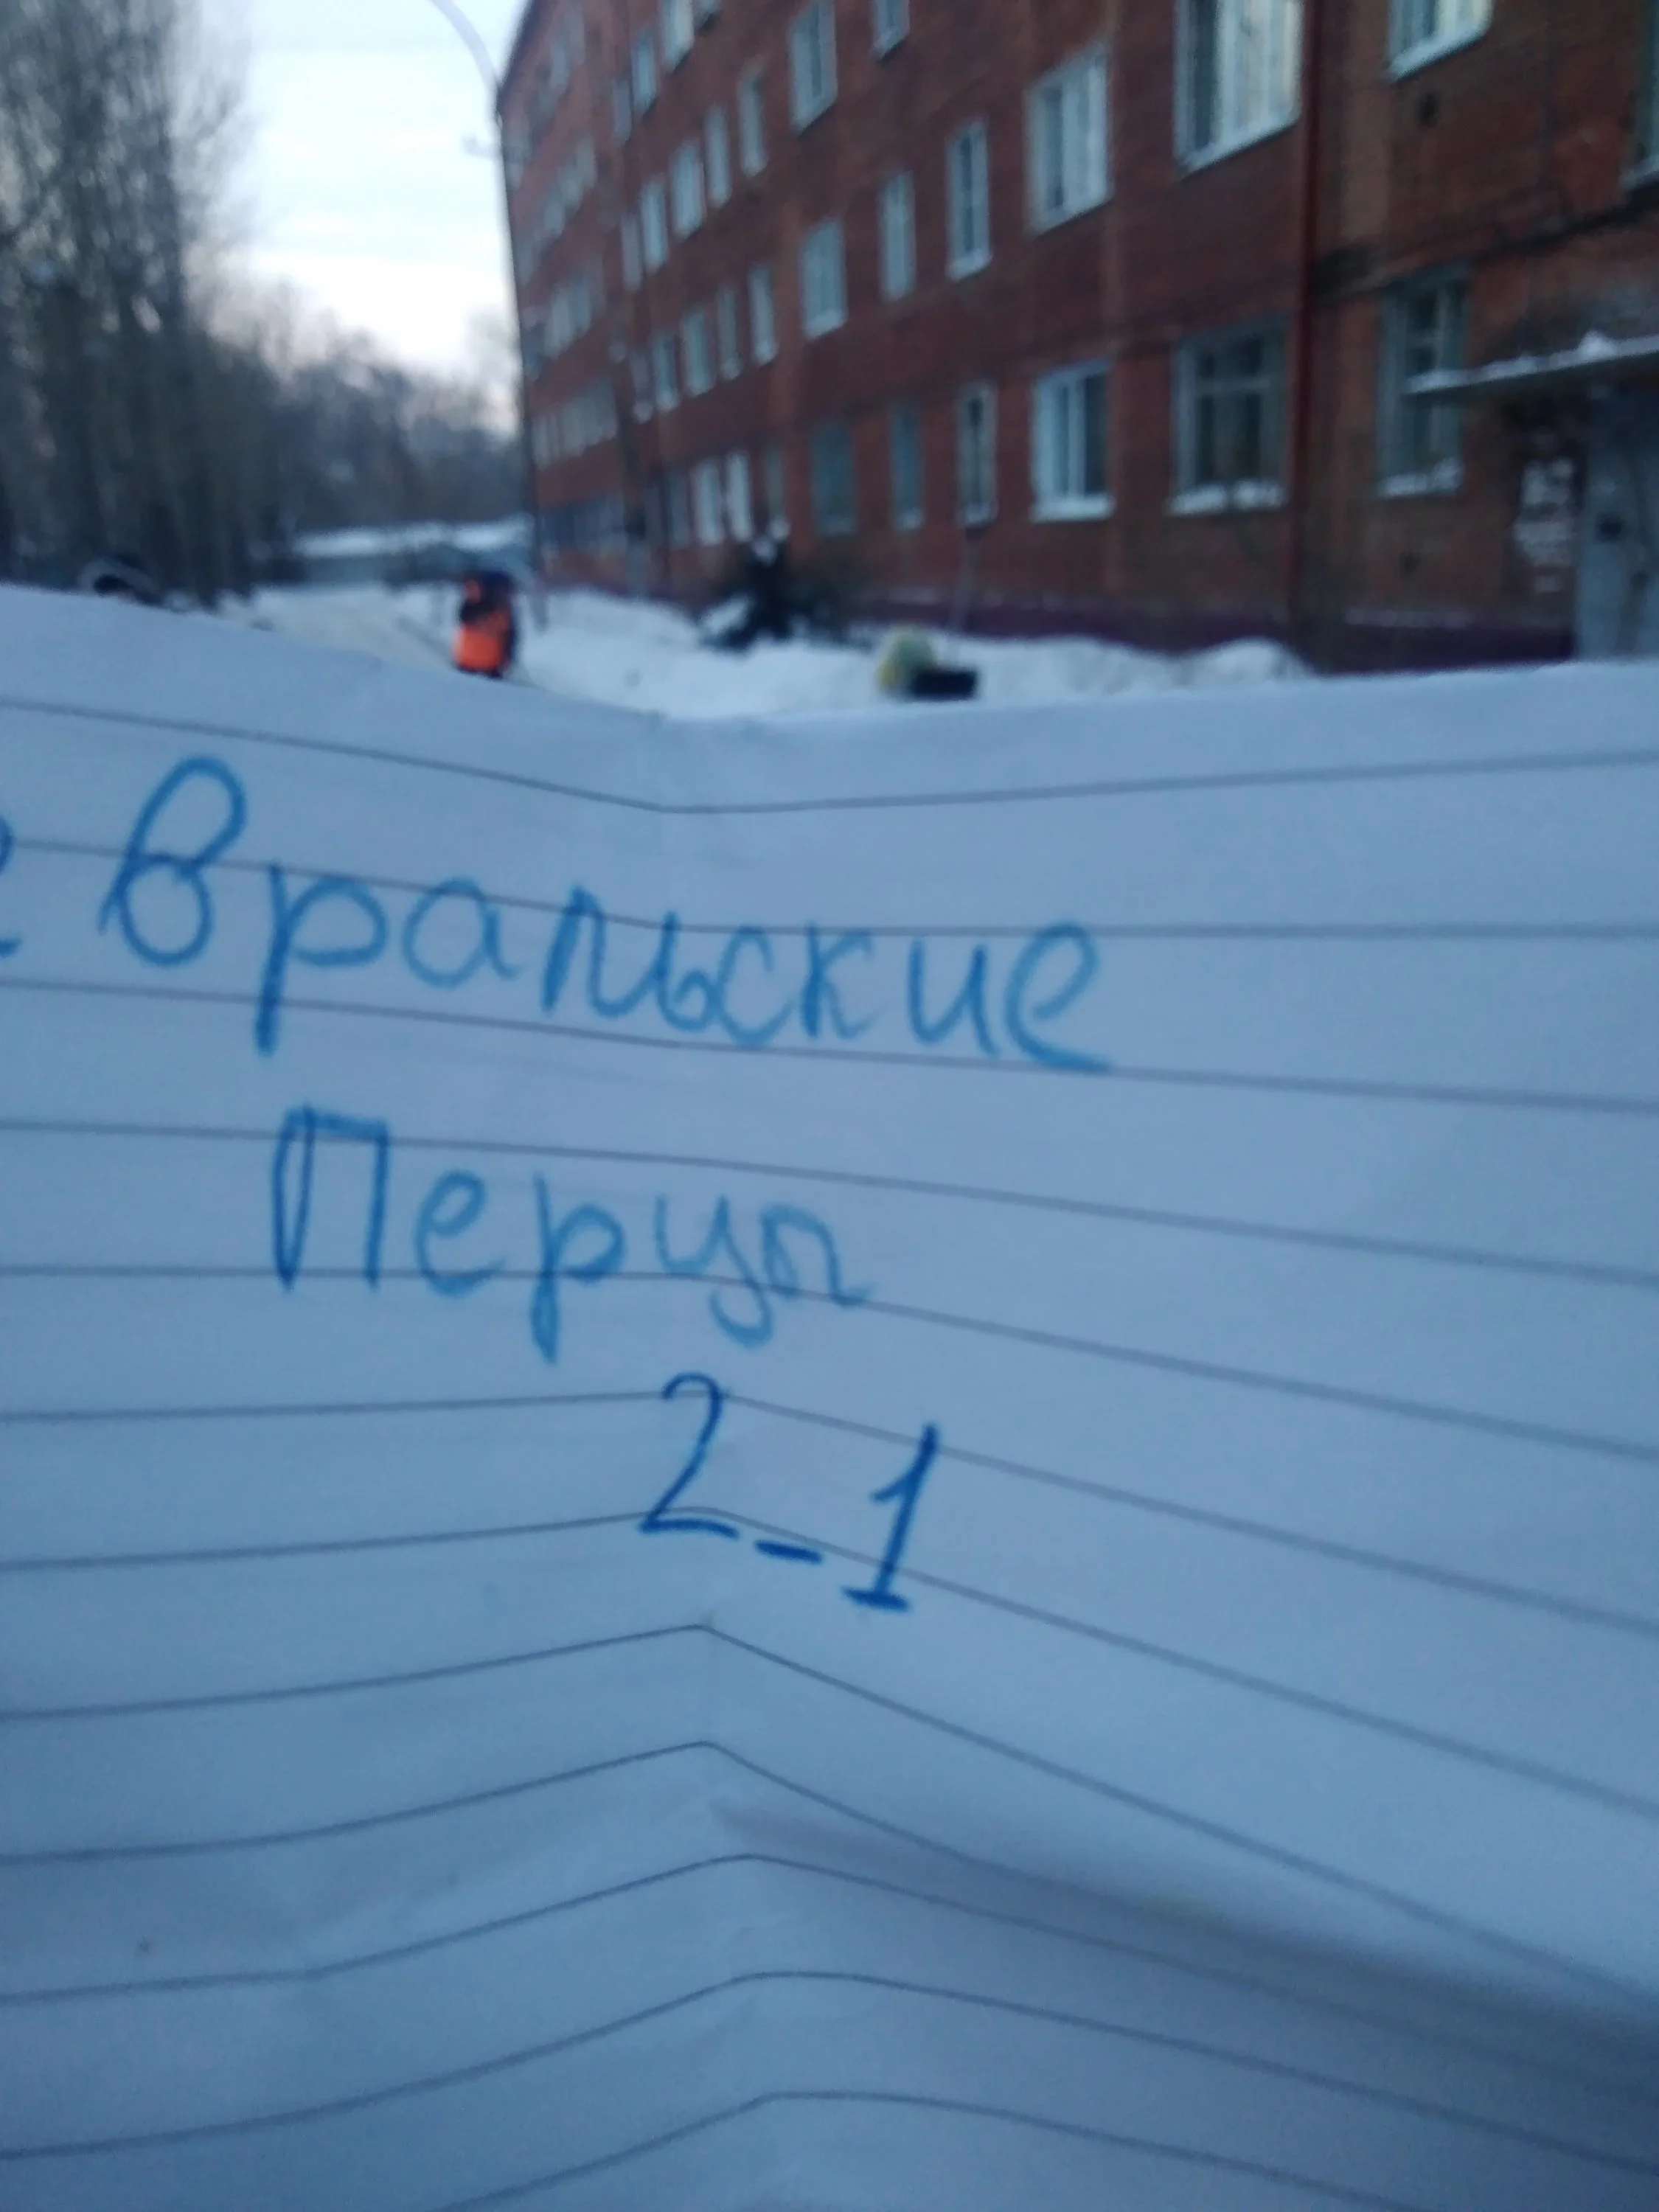 евральские
Перул
2_1